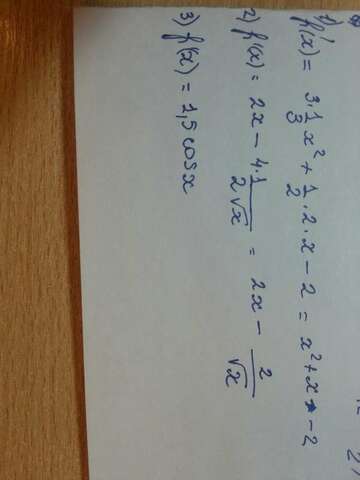 1) f'(x) = 3·1/3 x² + 1/2·2·x - 2 = x² + x - 2
2) f'(x) = 2x - 4·1/2√x = 2x - 2/√x
3) f'(x) = 1,5 cosx